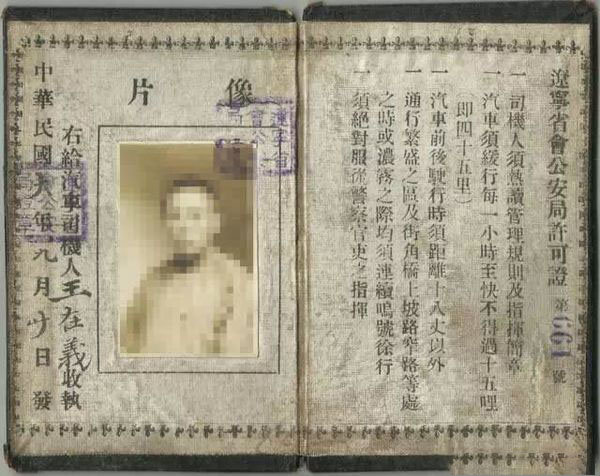 遼寧省會公安局許可證 第661號
一 司機人須熟讀管理規則及指揮簡章
一 汽車須緩行每一小時至快不得過十五哩
（即四十五里）
一 汽車前後駛行時須距離十八丈以外
一 通行繁盛之區及街角橋上坡路窄路等處
之時或濃霧之際均須連續鳴號徐行
一 須絕對服從警察官吏之指揮
像片
右給汽車司機人王在義收執
中華民國年九月十日發